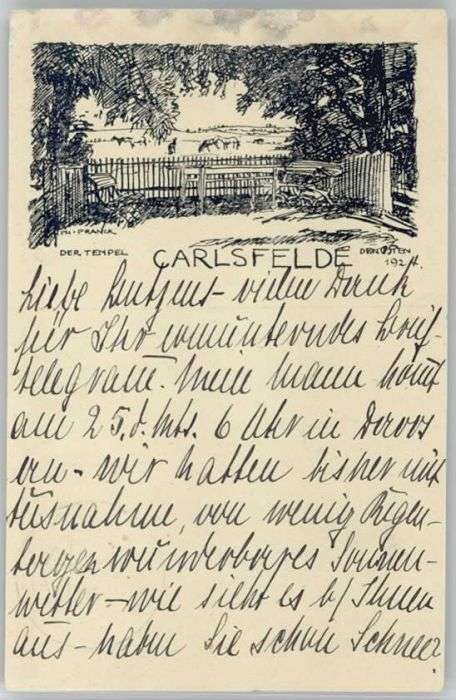 W. PRANCK
DER TEMPEL
CARLSFELDE
DEN
1924.
Liebe - vielen Dank
für Ihr ermunterndes Brief-
telegram. Mein Mann kömt
am 25. d. Mts. 6 Uhr in Davos
an - wir hatten bisher mit
Ausnahme, von wenig Regen-
wunderbares Sonnen-
wetter - wie sieht es b/ Ihnen
aus - haben Sie schon Schnee?